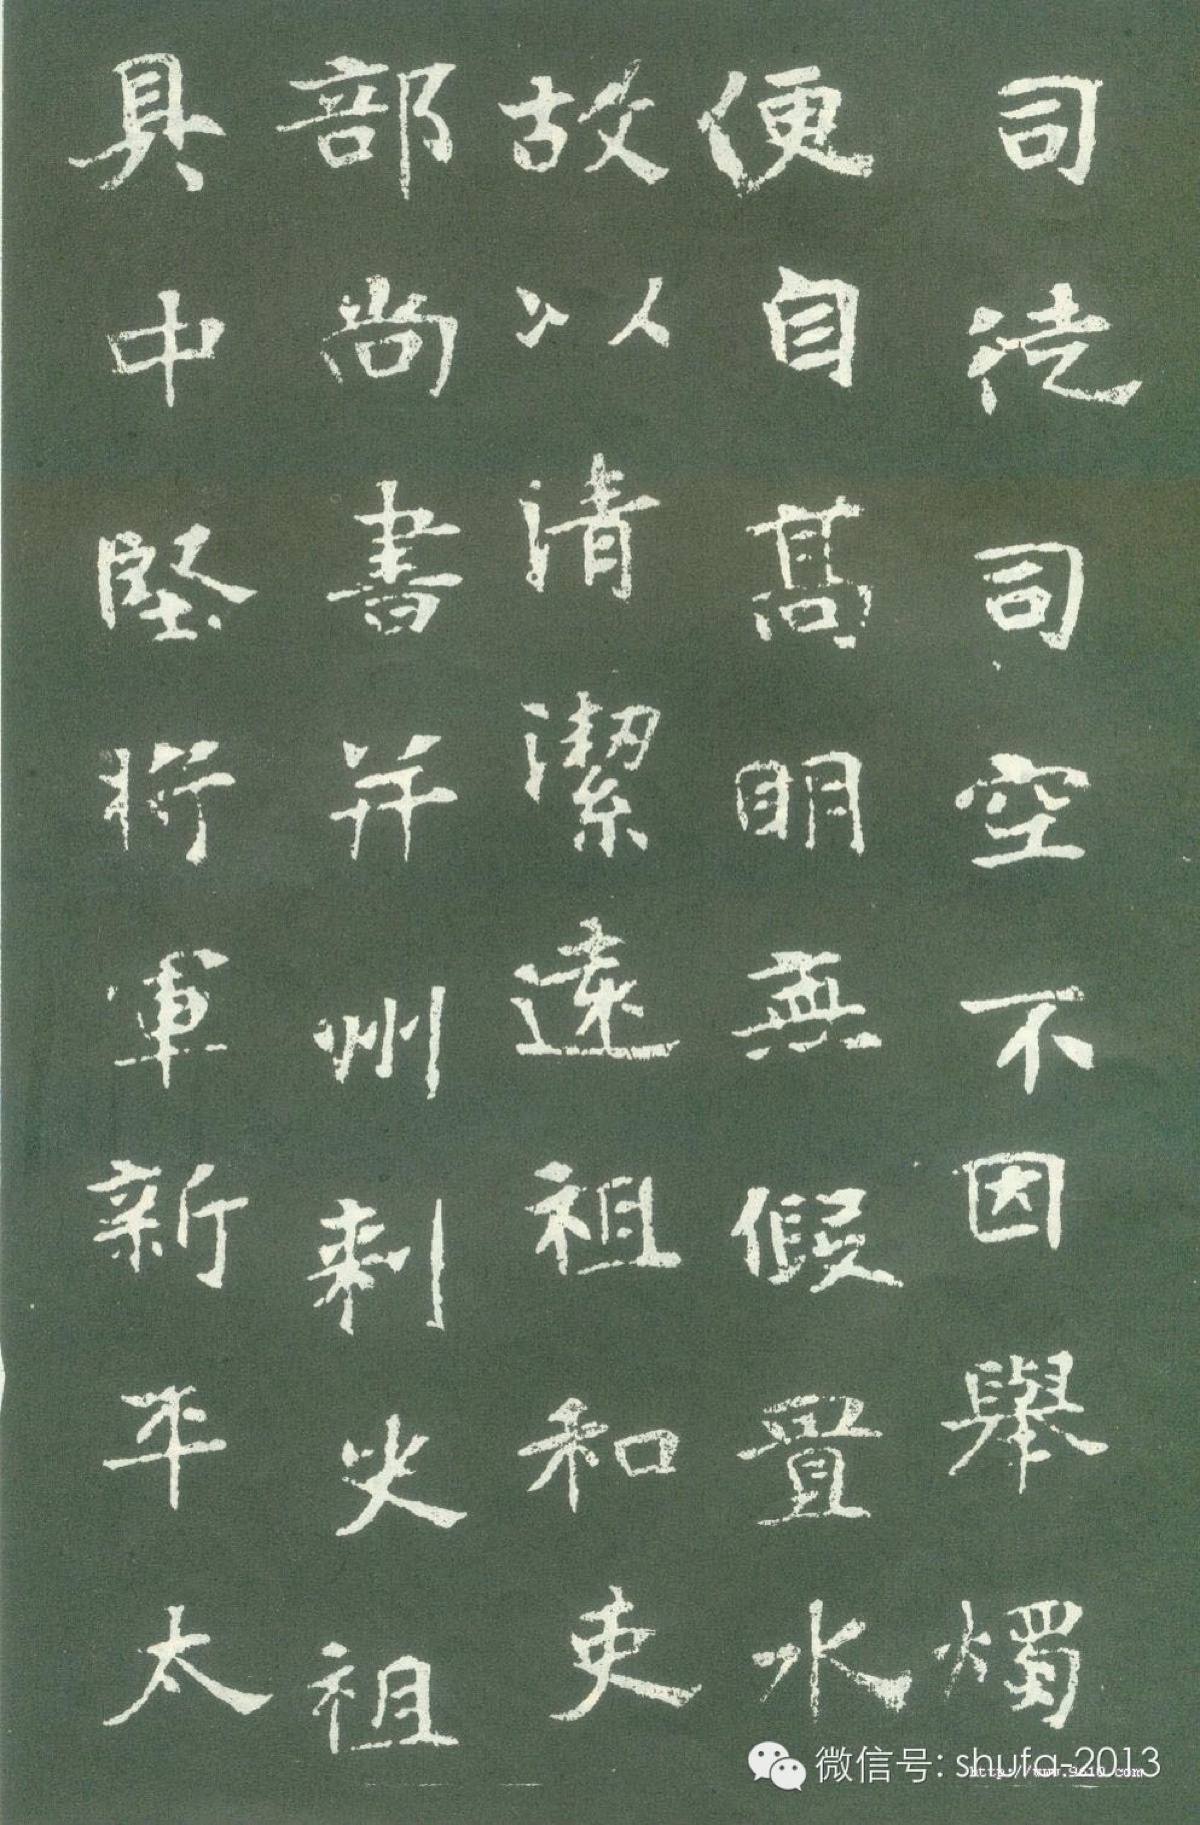 司徒司空不因舉燭
便自高明無假置水
故以清潔遠祖和吏
部尚書并州刺史祖
具中堅將軍新平太
微信号: shufa-2013
http://www.9610.com